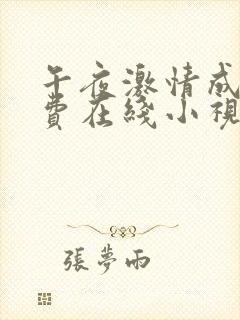 午夜激情成
費在綫小視
張夢雨